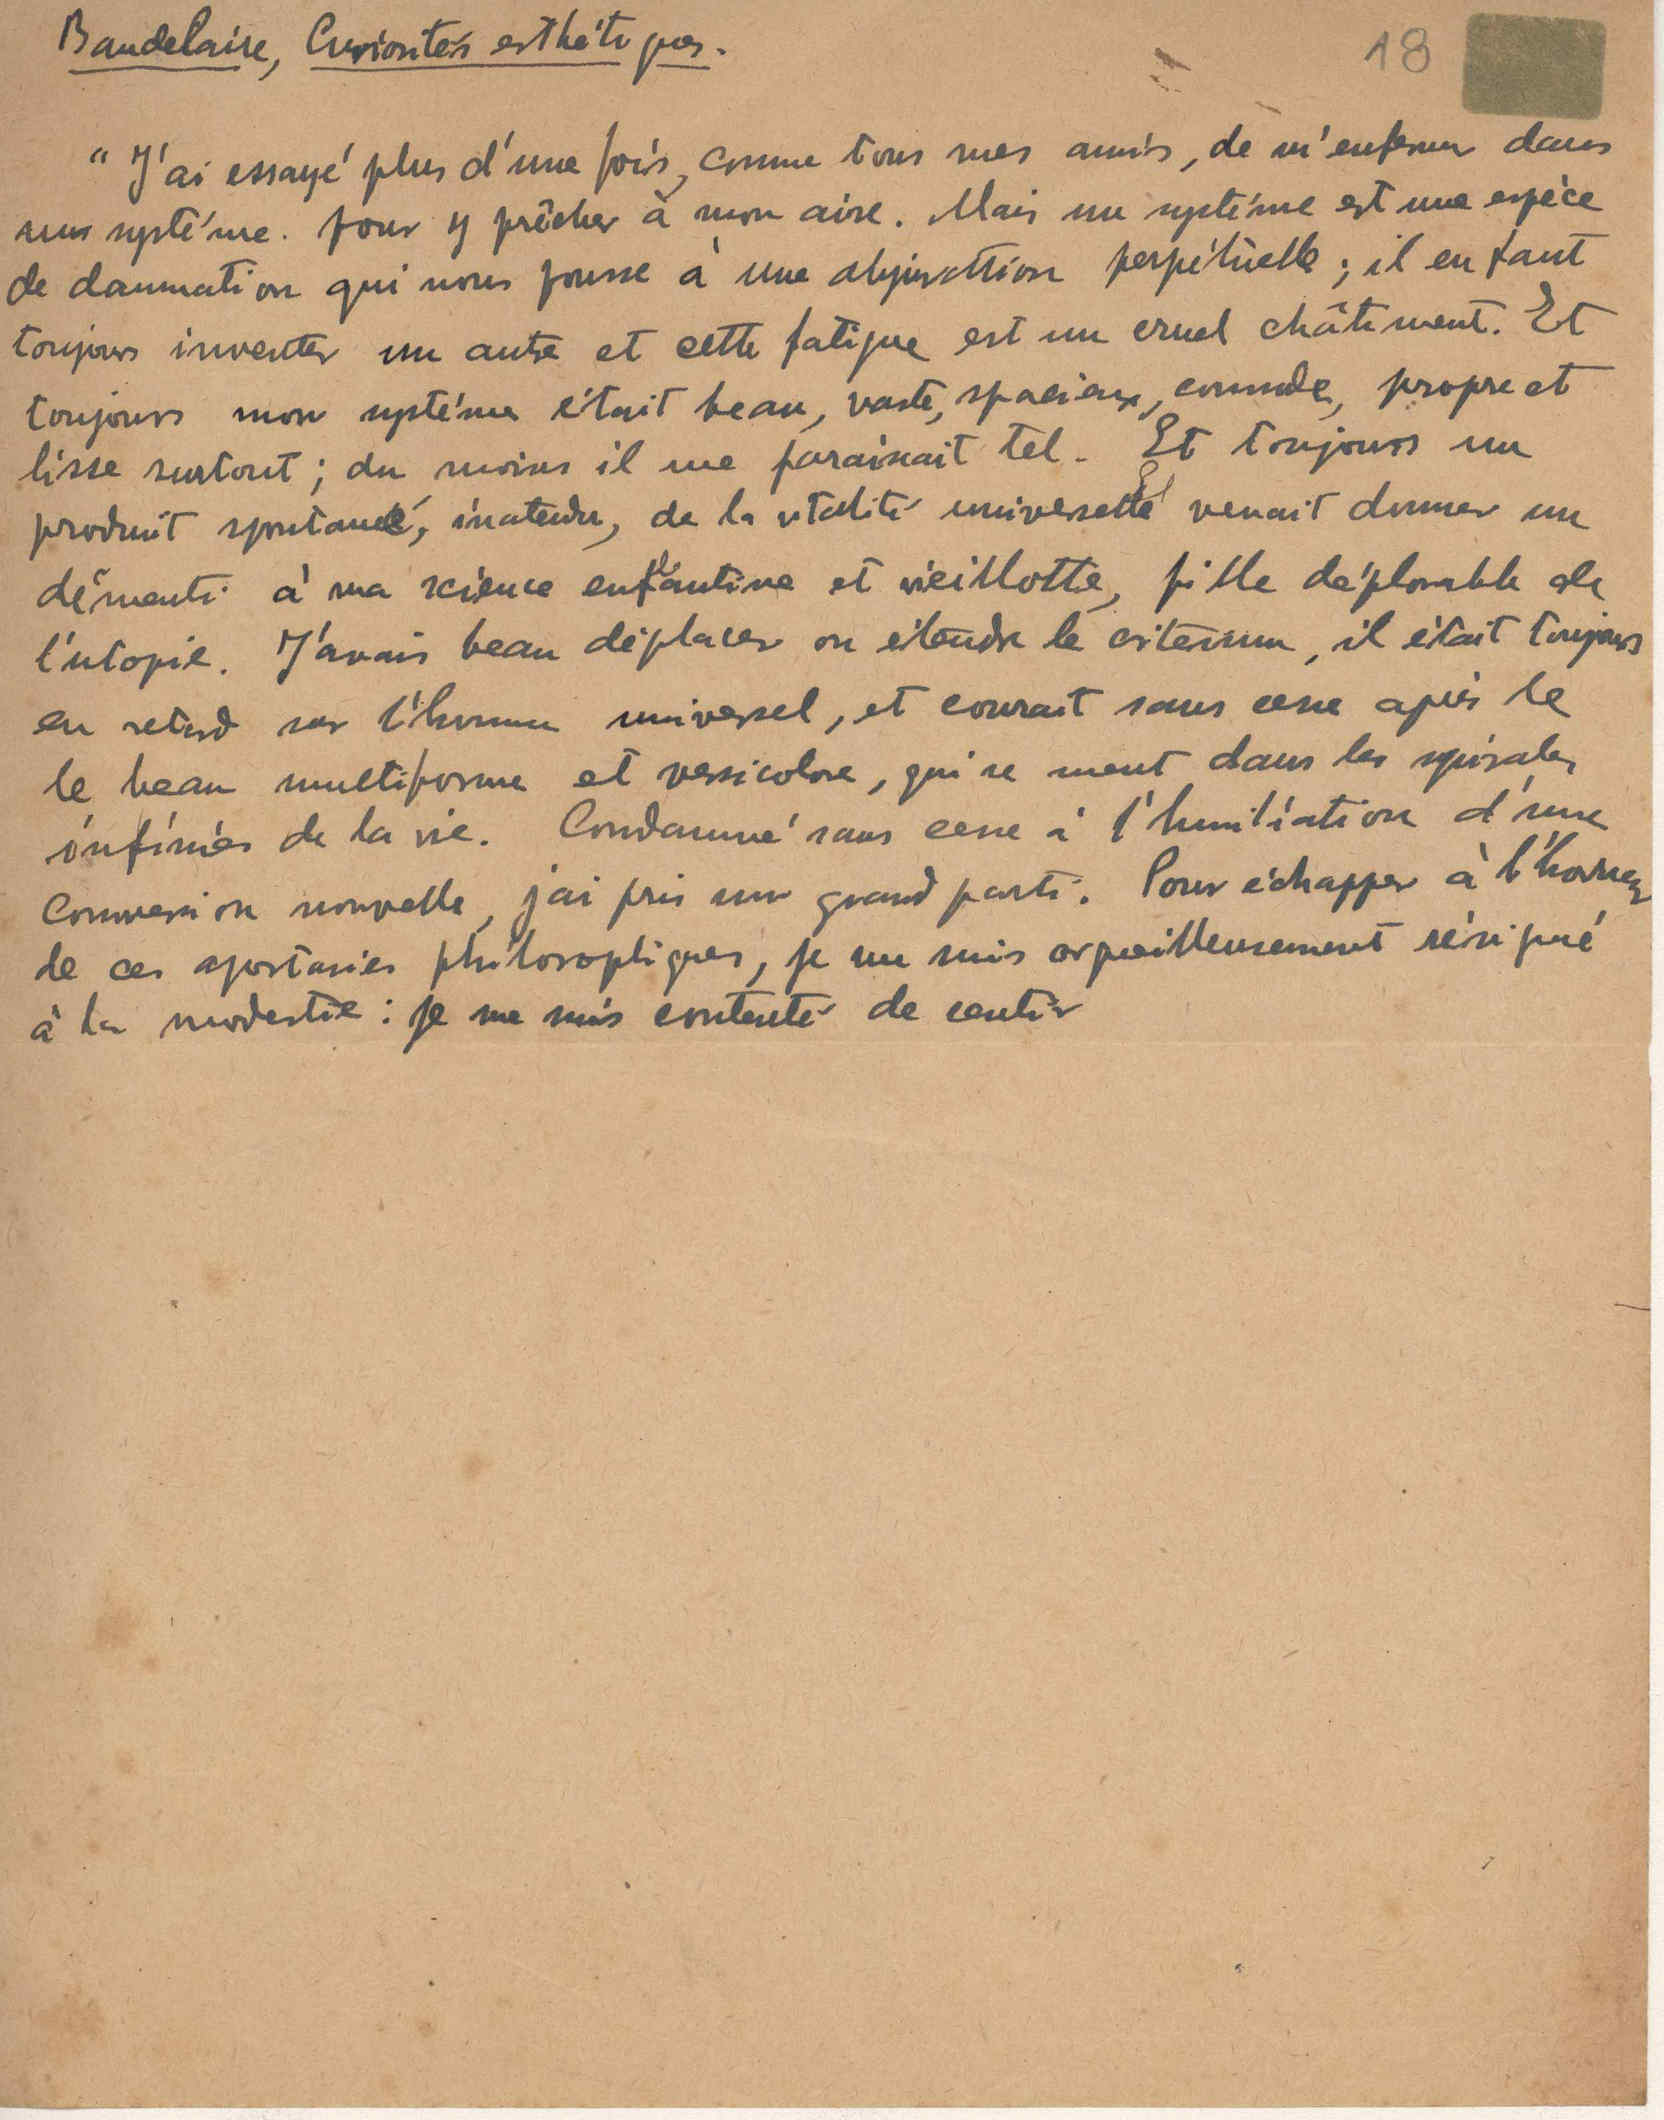 Baudelaire, Curiosités esthétiques.
18
"J'ai essayé plus d'une fois, comme tous mes amis, de m'enfermer dans
un système. pour y prêcher à mon aise. Mais un système est une espèce
de damnation qui nous pousse à une abjuration perpétuelle ; il en faut
toujours inventer un autre et cette fatigue est un cruel châtiment. Et
toujours mon système était beau, vaste, spacieux, commode, propre et
lisse surtout ; du moins il me paraissait tel. Et toujours un
produit spontané, inatendu, de la vitalité universelle venait donner un
démenti à ma science enfantine et vieillotte, fille déplorable de
l'utopie. J'avais beau déplacer ou étendre le criterium, il était toujours
en retard sur l'homme universel, et courait sans cesse après le
le beau multiforme et versicolore, qui se meut dans les spirales
infinies de la vie. Condamné sans cesse à l'humiliation d'une
conversion nouvelle, j'ai pris un grand parti. Pour échapper à l'horreur
de ces apostasies philosophiques, je me suis orgueilleusement résigné
à la modestie : je me suis contenté de sentir